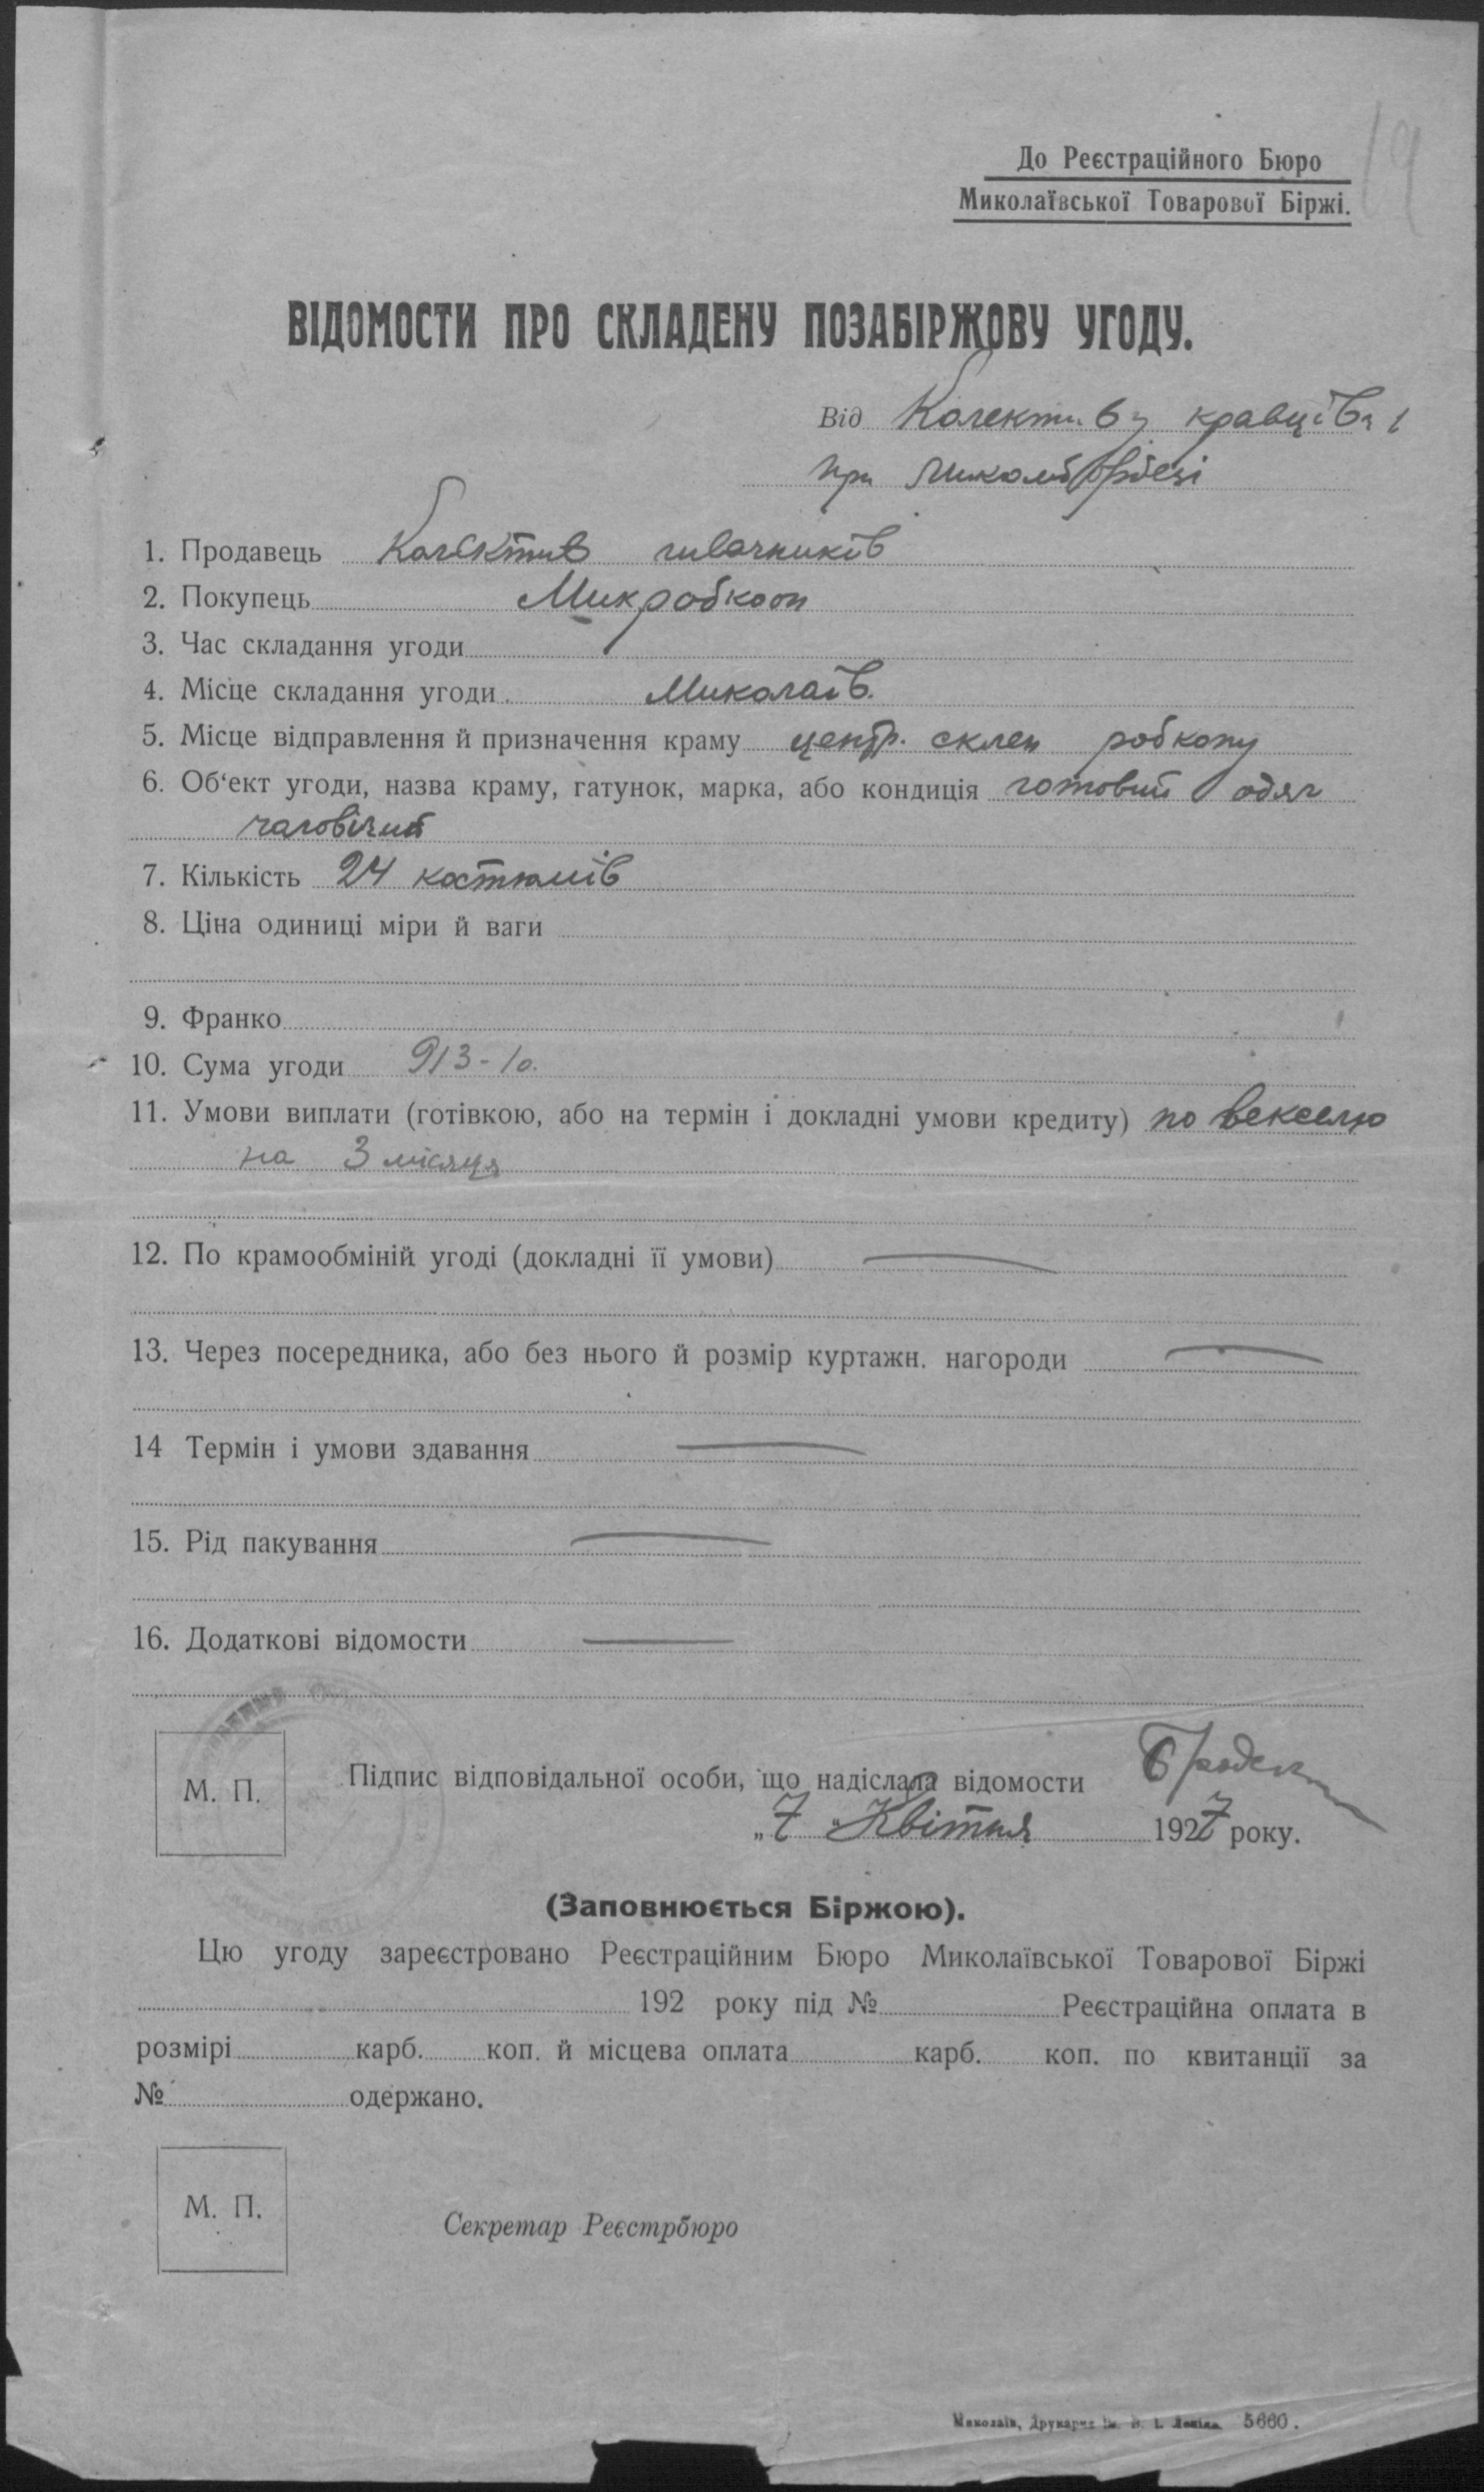 19
До Реєстраційного Бюро
Миколаївської Товарової Біржі.
ВІДОМОСТИ ПРО СКЛАДЕНУ ПОЗАБІРЖОВУ УГОДУ.
Від Колективу кравців
при
1. Продавець Колектив швачників
2. Покупець Микробкооп
3. Час складання угоди
4. Місце складання угоди Миколаїв.
5. Місце відправлення й призначення краму центр. склеп робкопу
6. Об'єкт угоди, назва краму, гатунок, марка, або кондиція готовий одяг
чаловічий
7. Кількість 24 костюмів
8. Ціна одиниці міри й ваги
9. Франко
10. Сума угоди 913-10.
11. Умови виплати (готівкою, або на термін і докладні умови кредиту) по векселю
на 3 місяця
12. По крамообміній угоді (докладні її умови) —
13. Через посередника, або без нього й розмір куртажн. нагороди —
14 Термін і умови здавання —
15. Рід пакування —
16. Додаткові відомости —
М. П.
Підпис відповідальної особи, що надіслала відомости
„7" Квітня 1927 року.
(Заповнюється Біржою).
Цю угоду зареєстровано Реєстраційним Бюро Миколаївської Товарової Біржі
192 року під № Реєстраційна оплата в
розмірі карб. коп. й місцева оплата карб. коп. по квитанції за
№ одержано.
М. П.
Секретар Реєстрбюро
Миколаїв, Друкарня ім. В. І. Леніна. 5660.